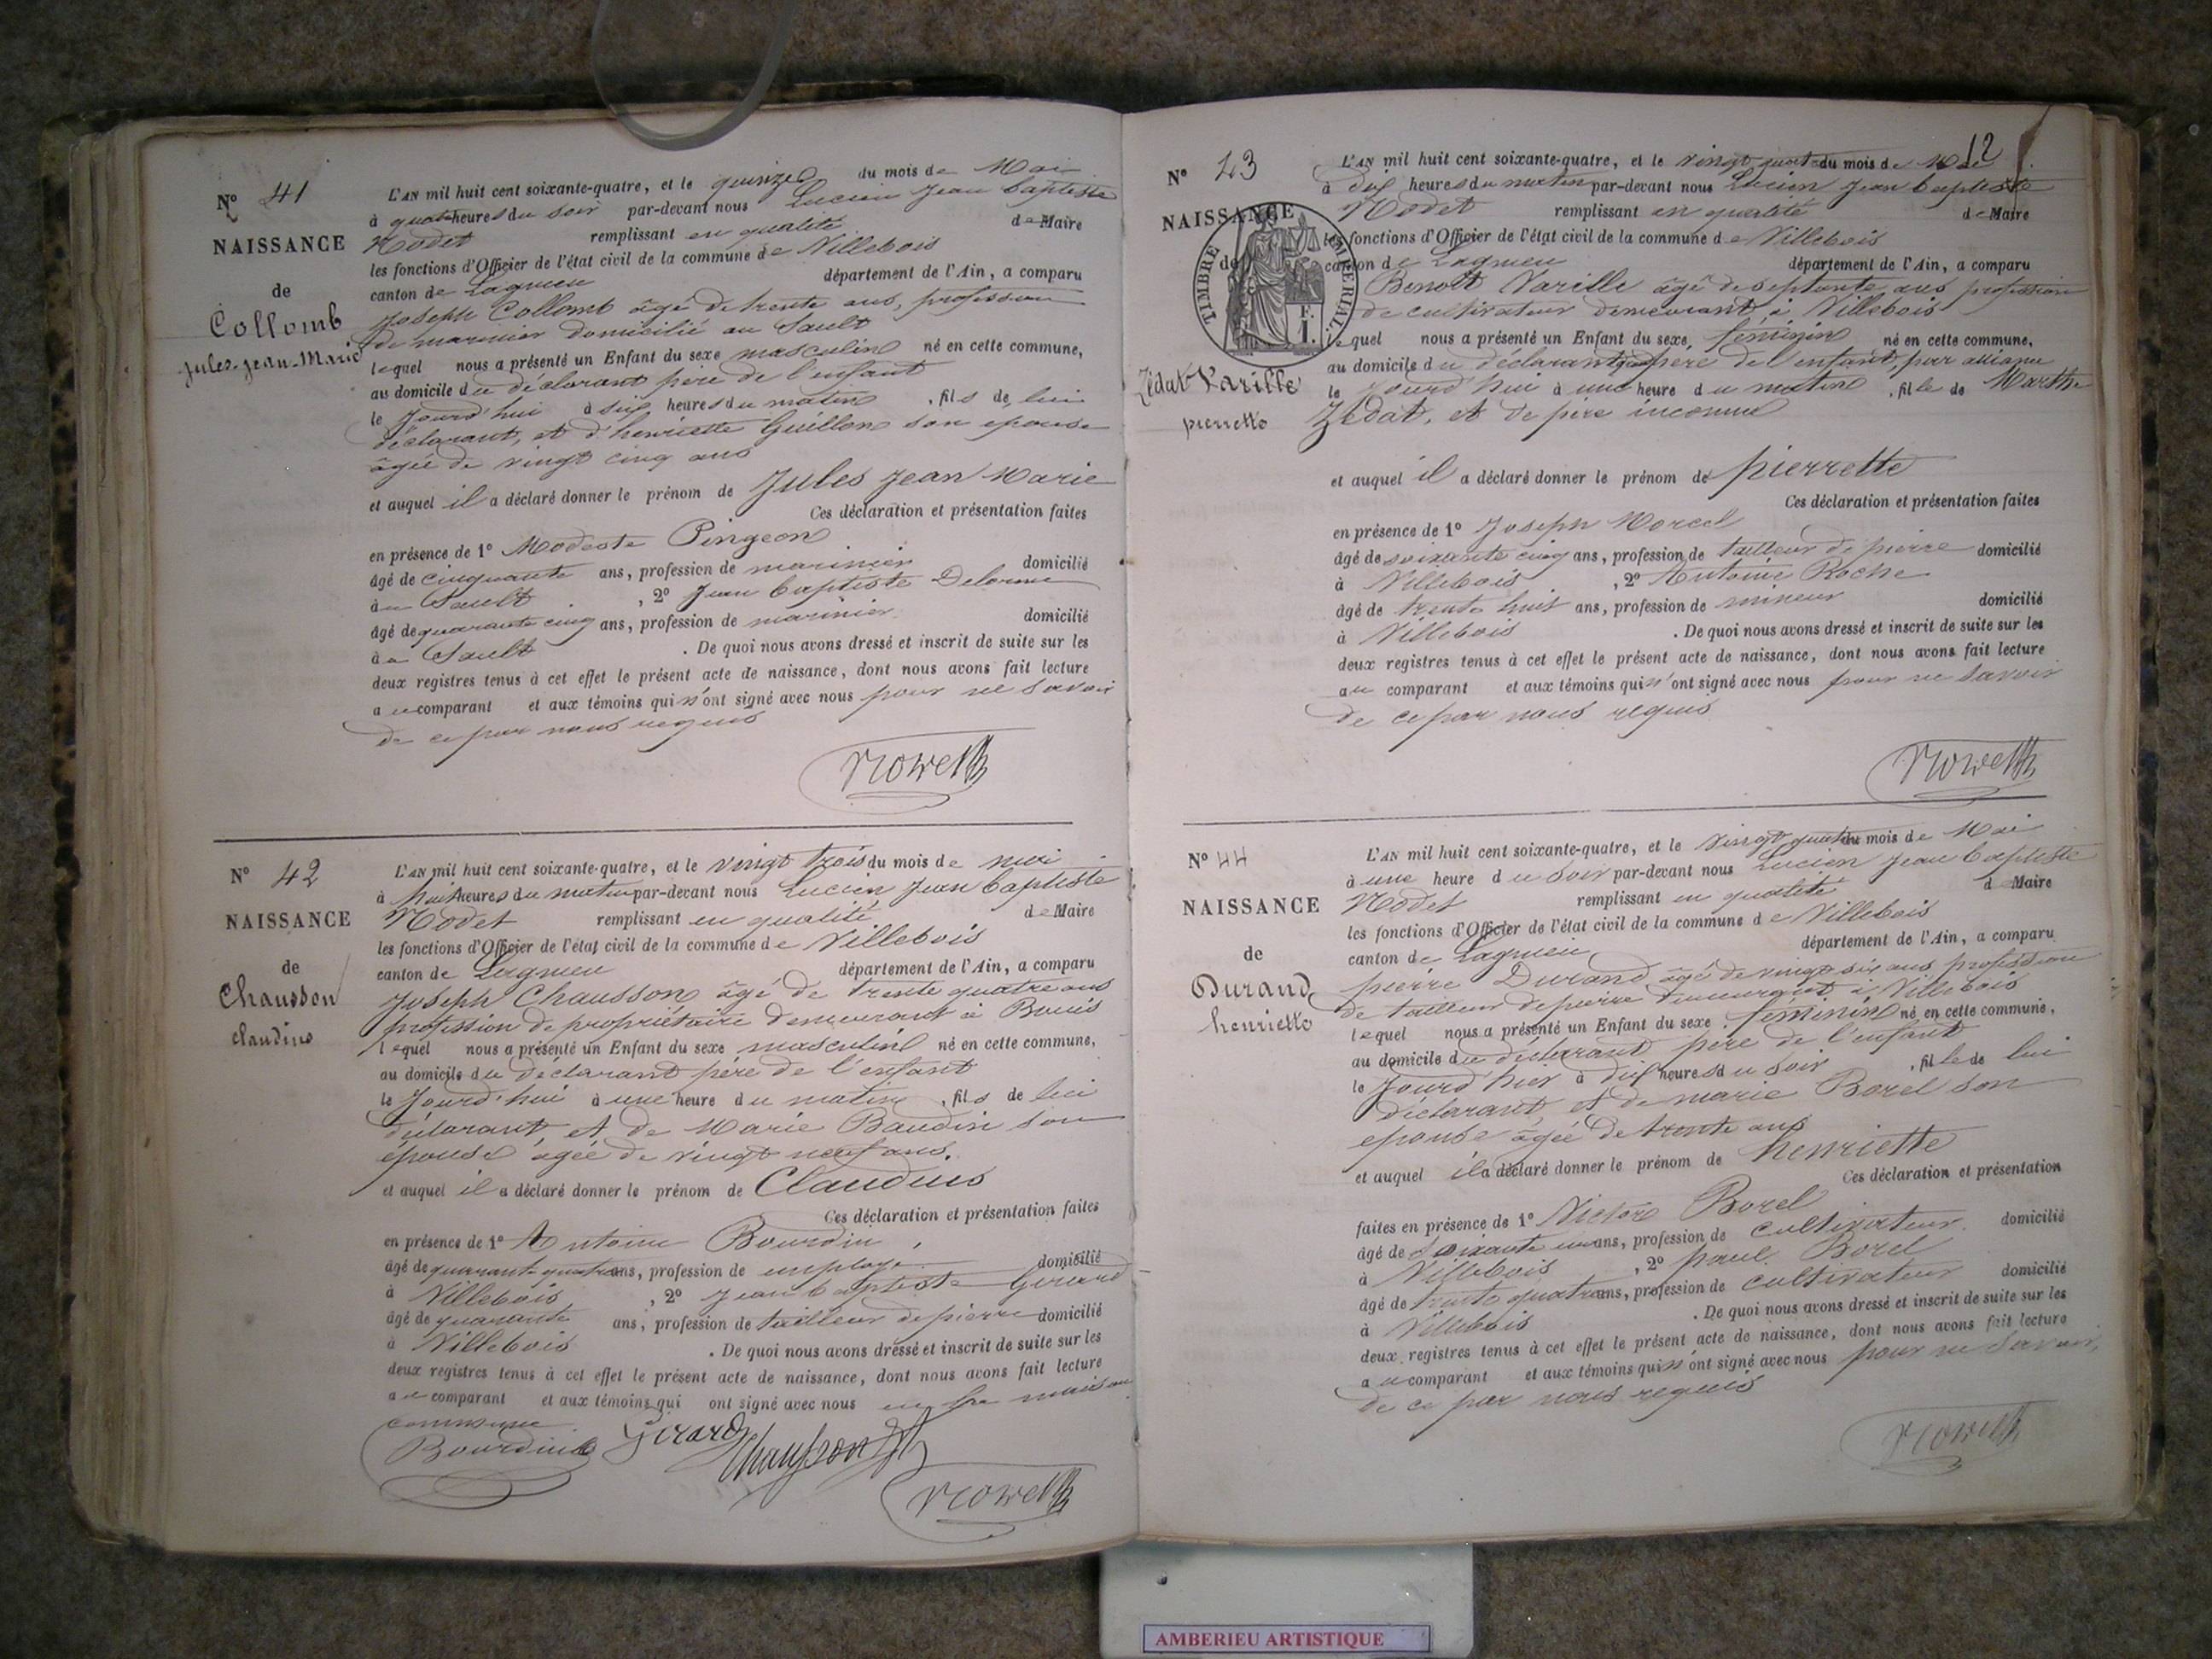 N° 41
NAISSANCE
de
Collomb
Jules-Jean-Marie
L'AN mil huit cent soixante-quatre, et le quinze du mois de Mai
à quatre heures du soir par-devant nous Lucien Jean baptiste
Rodet remplissant en qualité de Maire
les fonctions d'Officier de l'état civil de la commune de Villebois
canton de Lagnieu département de l'Ain, a comparu
Joseph Collomb âgé de trente ans, profession
de marinier domicilié au Sault
lequel nous a présenté un Enfant du sexe masculin né en cette commune,
au domicile du déclarant père de l'enfant
le Jourd'hui à six heures du matin, fils de lui
déclarant, et d'henriette Guillon son épouse
âgée de vingt cinq ans
et auquel il a déclaré donner le prénom de Jules Jean Marie
Ces déclaration et présentation faites
en présence de 1° Modeste Pingeon
âgé de cinquante ans, profession de marinier domicilié
au Sault, 2° Jean baptiste Delorme
âgé de quarante cinq ans, profession de marinier domicilié
au Sault. De quoi nous avons dressé et inscrit de suite sur les
deux registres tenus à cet effet le présent acte de naissance, dont nous avons fait lecture
au comparant et aux témoins qui n'ont signé avec nous pour ne savoir
de ce par nous requis
N° 42
NAISSANCE
de
Chausson
claudius
L'AN mil huit cent soixante-quatre, et le vingt trois du mois de mai
à huit heures du matin par-devant nous Lucien Jean baptiste
Rodet remplissant en qualité de Maire
les fonctions d'Officier de l'état civil de la commune de Villebois
canton de Lagnieu département de l'Ain, a comparu
Joseph Chausson âgé de trente quatre ans
profession de propriétaire demeurant à Bouis
lequel nous a présenté un Enfant du sexe masculin né en cette commune,
au domicile du déclarant père de l'enfant
le Jourd'hui à une heure du matin, fils de lui
déclarant, et de Marie Baudin son
épouse âgée de vingt neuf ans.
et auquel il a déclaré donner le prénom de Claudius
Ces déclaration et présentation faites
en présence de 1° Antoine Bourdin,
âgé de quarante quatre ans, profession de employé domicilié
à Villebois, 2° Jean baptiste Girard
âgé de quarante ans, profession de tailleur de pierre domicilié
à Villebois. De quoi nous avons dressé et inscrit de suite sur les
deux registres tenus à cet effet le présent acte de naissance, dont nous avons fait lecture
au comparant et aux témoins qui ont signé avec nous en la maison
commune
Bourdin Girard Chausson
12
N° 43
NAISSANCE
de
TIMBRE IMPÉRIAL
Zédat Varille
pierrette
L'AN mil huit cent soixante-quatre, et le vingt quatre du mois de Mai
à dix heures du matin par-devant nous Lucien Jean baptiste
Rodet remplissant en qualité de Maire
les fonctions d'Officier de l'état civil de la commune de Villebois
canton de Lagnieu département de l'Ain, a comparu
Benoît Varille âgé de septante ans profession
de cultivateur demeurant à Villebois
lequel nous a présenté un Enfant du sexe féminin né en cette commune,
au domicile du déclarant père de l'enfant, par alliance
le Jourd'hui à une heure du matin, fille de Marthe
Zédat, et de père inconnu
et auquel il a déclaré donner le prénom de pierrette
Ces déclaration et présentation faites
en présence de 1° Joseph Morcel
âgé de soixante cinq ans, profession de tailleur de pierre domicilié
à Villebois, 2° Antoine Roche
âgé de trente huit ans, profession de mineur domicilié
à Villebois. De quoi nous avons dressé et inscrit de suite sur les
deux registres tenus à cet effet le présent acte de naissance, dont nous avons fait lecture
au comparant et aux témoins qui n'ont signé avec nous pour ne savoir
de ce par nous requis
N° 44
NAISSANCE
de
Durand
henriette
L'AN mil huit cent soixante-quatre, et le vingt quatre du mois de Mai
à une heure du soir par-devant nous Lucien Jean baptiste
Rodet remplissant en qualité de Maire
les fonctions d'Officier de l'état civil de la commune de Villebois
canton de Lagnieu département de l'Ain, a comparu
pierre Durand âgé de vingt six ans profession
de tailleur de pierre demeurant à Villebois
lequel nous a présenté un Enfant du sexe féminin né en cette commune,
au domicile du déclarant père de l'enfant
le Jourd'hier à dix heures du soir, fille de lui
déclarant, et de marie Borel son
épouse âgée de trente ans
et auquel il a déclaré donner le prénom de henriette
Ces déclaration et présentation
faites en présence de 1° Victor Borel
âgé de soixante un ans, profession de cultivateur domicilié
à Villebois, 2° paul Borel
âgé de trente quatre ans, profession de cultivateur domicilié
à Villebois. De quoi nous avons dressé et inscrit de suite sur les
deux registres tenus à cet effet le présent acte de naissance, dont nous avons fait lecture
au comparant et aux témoins qui n'ont signé avec nous pour ne savoir,
de ce par nous requis
AMBERIEU ARTISTIQUE